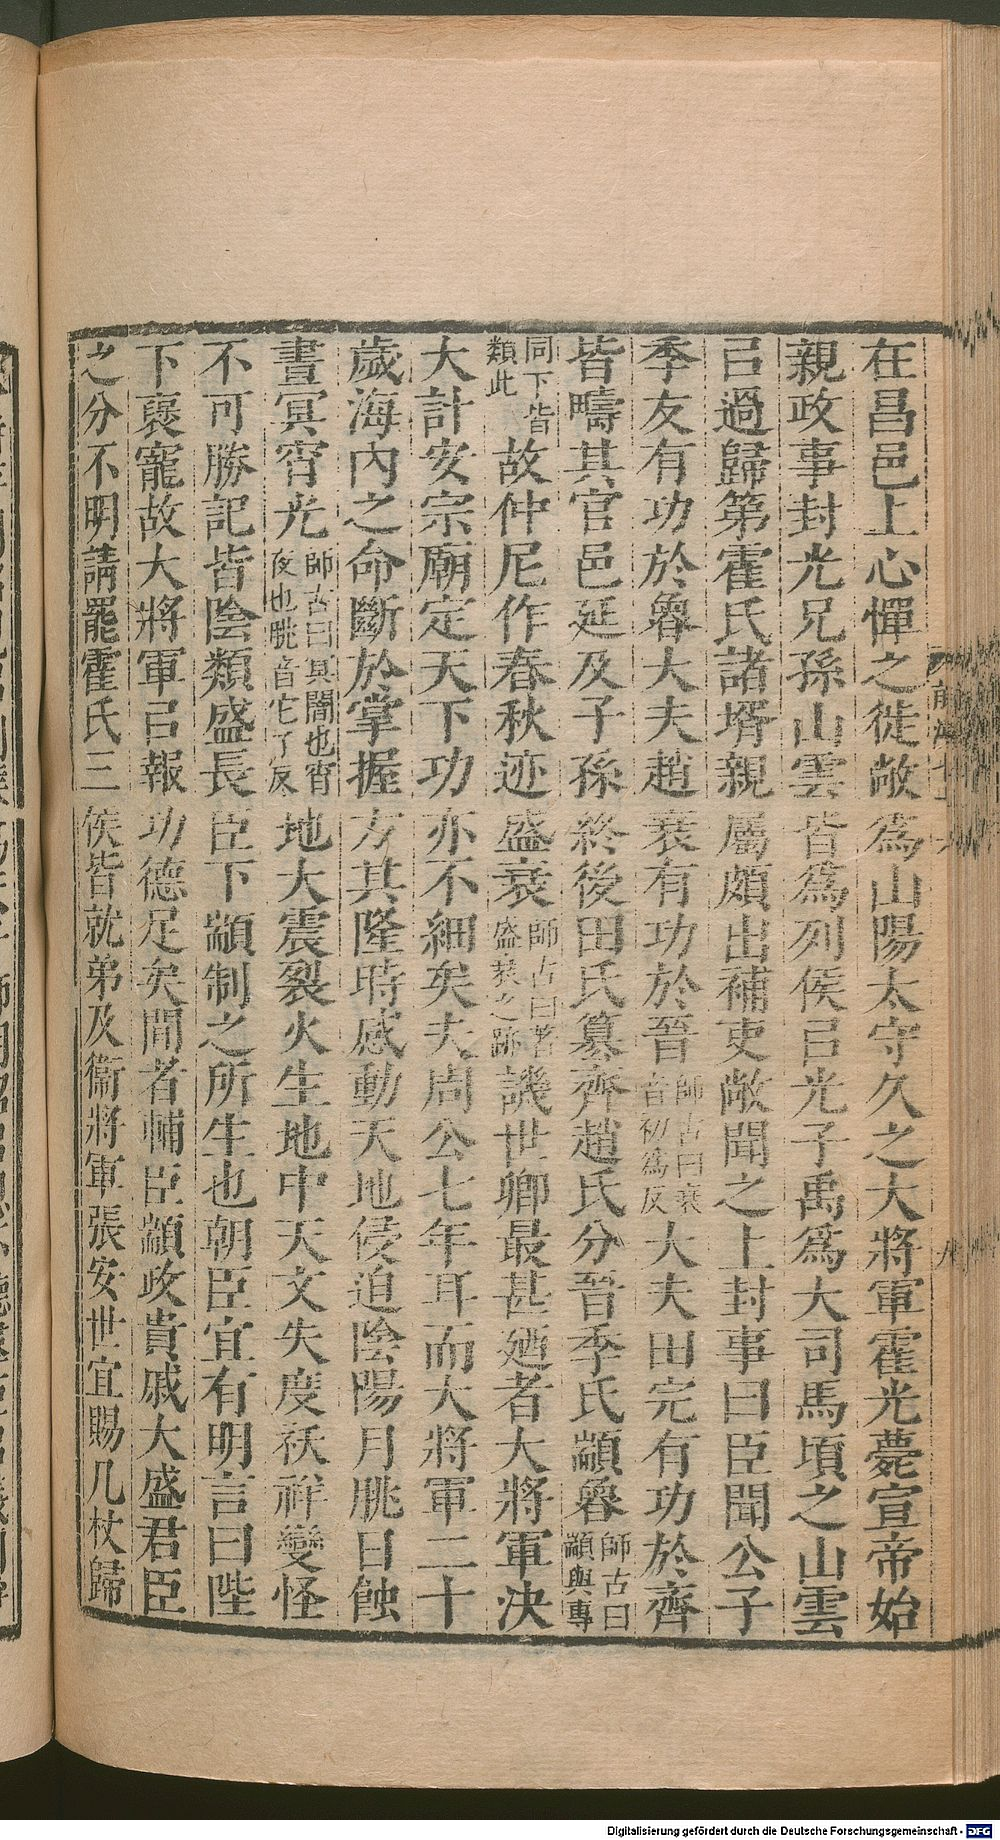 在昌邑上心憚之徙敞為山陽太守久之大將軍霍光薨宣帝始
親政事封光兄孫山雲皆為列侯㠯光子禹為大司馬頃之山雲
㠯過歸第霍氏諸壻親屬頗出補吏敞聞之上封事曰臣聞公子
季友有功於魯大夫趙衰有功於晉師古曰衰音初為反大夫田完有功於齊
皆疇其官邑延及子孫終後田氏篡齊趙氏分晉季氏顓魯師古曰顓與專
同下皆類此故仲尼作春秋迹盛衰師古曰著盛衰之跡譏世卿最甚廼者大將軍決
大計安宗廟定天下功亦不細矣夫周公七年耳而大將軍二十
歲海內之命斷於掌握方其隆時感動天地侵迫陰陽月朓日蝕
晝冥宵光師古曰冥闇也宵夜也朓音它了反地大震裂火生地中天文失度祅祥變怪
不可勝記皆陰類盛長臣下顓制之所生也朝臣宜有明言曰陛
下襃寵故大將軍㠯報功德足矣間者輔臣顓政貴戚大盛君臣
之分不明請罷霍氏三侯皆就弟及衞將軍張安世宜賜几杖歸
Digitalisierung gefördert durch die Deutsche Forschungsgemeinschaft - DFG